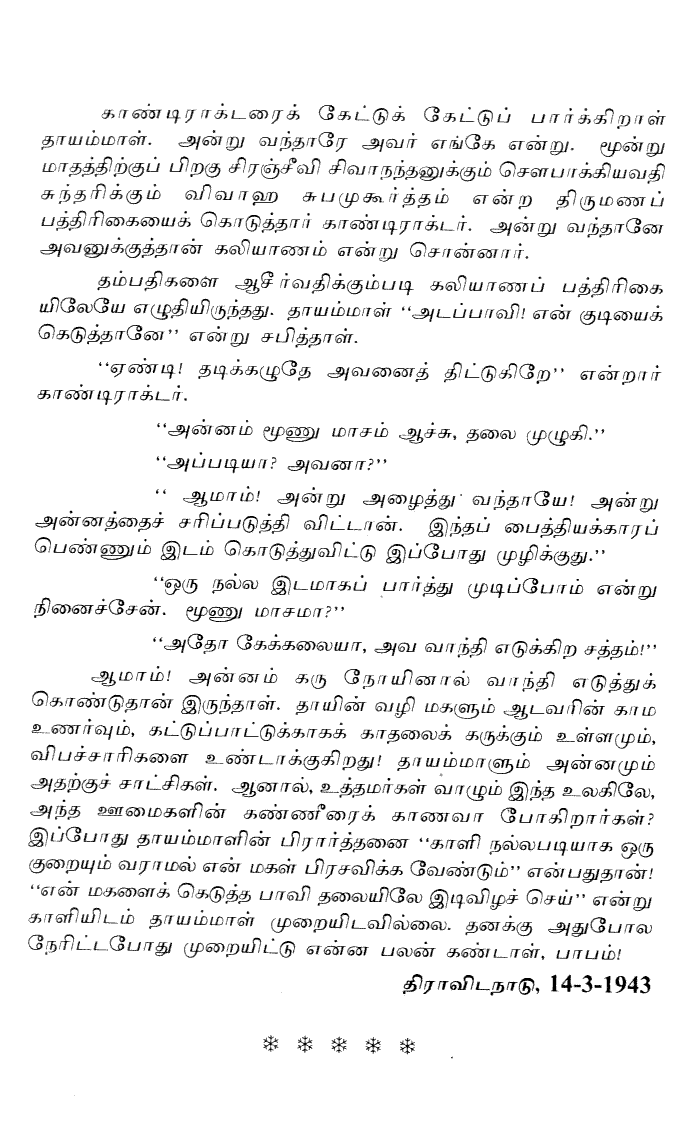 காண்டிராக்டரைக் கேட்டுக் கேட்டுப் பார்க்கிறாள்
தாயம்மாள். அன்று வந்தாரே அவர் எங்கே என்று. மூன்று
மாதத்திற்குப் பிறகு சிரஞ்சீவி சிவாநந்தனுக்கும் சௌபாக்கியவதி
சுந்தரிக்கும் விவாஹ சுபமுகூர்த்தம் என்ற திருமணப்
பத்திரிகையைக் கொடுத்தார் காண்டிராக்டர். அன்று வந்தானே
அவனுக்குத்தான் கலியாணம் என்று சொன்னார்.
தம்பதிகளை ஆசீர்வதிக்கும்படி கலியாணப் பத்திரிகை
யிலேயே எழுதியிருந்தது. தாயம்மாள் ‘‘அடப்பாவி! என் குடியைக்
கெடுத்தானே’’ என்று சபித்தாள்.
‘‘ஏண்டி! தடிக்கழுதே அவனைத் திட்டுகிறே’’ என்றார்
காண்டிராக்டர்.
‘‘அன்னம் மூணு மாசம் ஆச்சு, தலை முழுகி.’’
‘‘அப்படியா? அவனா?’’
‘‘ ஆமாம்! அன்று அழைத்து வந்தாயே! அன்று
அன்னத்தைச் சரிப்படுத்தி விட்டான். இந்தப் பைத்தியக்காரப்
பெண்ணும் இடம் கொடுத்துவிட்டு இப்போது முழிக்குது.’’
‘‘ஒரு நல்ல இடமாகப் பார்த்து முடிப்போம் என்று
நினைச்சேன். மூணு மாசமா?’’
‘‘அதோ கேக்கலையா, அவ வாந்தி எடுக்கிற சத்தம்!’’
ஆமாம்! அன்னம் கரு நோயினால் வாந்தி எடுத்துக்
கொண்டுதான் இருந்தாள். தாயின் வழி மகளும் ஆடவரின் காம
உணர்வும், கட்டுப்பாட்டுக்காகக் காதலைக் கருக்கும் உள்ளமும்,
விபச்சாரிகளை உண்டாக்குகிறது! தாயம்மாளும் அன்னமும்
அதற்குச் சாட்சிகள். ஆனால், உத்தமர்கள் வாழும் இந்த உலகிலே,
அந்த ஊமைகளின் கண்ணீரைக் காணவா போகிறார்கள்?
இப்போது தாயம்மாளின் பிரார்த்தனை ‘‘காளி நல்லபடியாக ஒரு
குறையும் வராமல் என் மகள் பிரசவிக்க வேண்டும்’’ என்பதுதான்!
‘‘என் மகளைக் கெடுத்த பாவி தலையிலே இடிவிழச் செய்’’ என்று
காளியிடம் தாயம்மாள் முறையிடவில்லை. தனக்கு அதுபோல
நேரிட்டபோது முறையிட்டு என்ன பலன் கண்டாள், பாபம்!
திராவிடநாடு, 14-3-1943